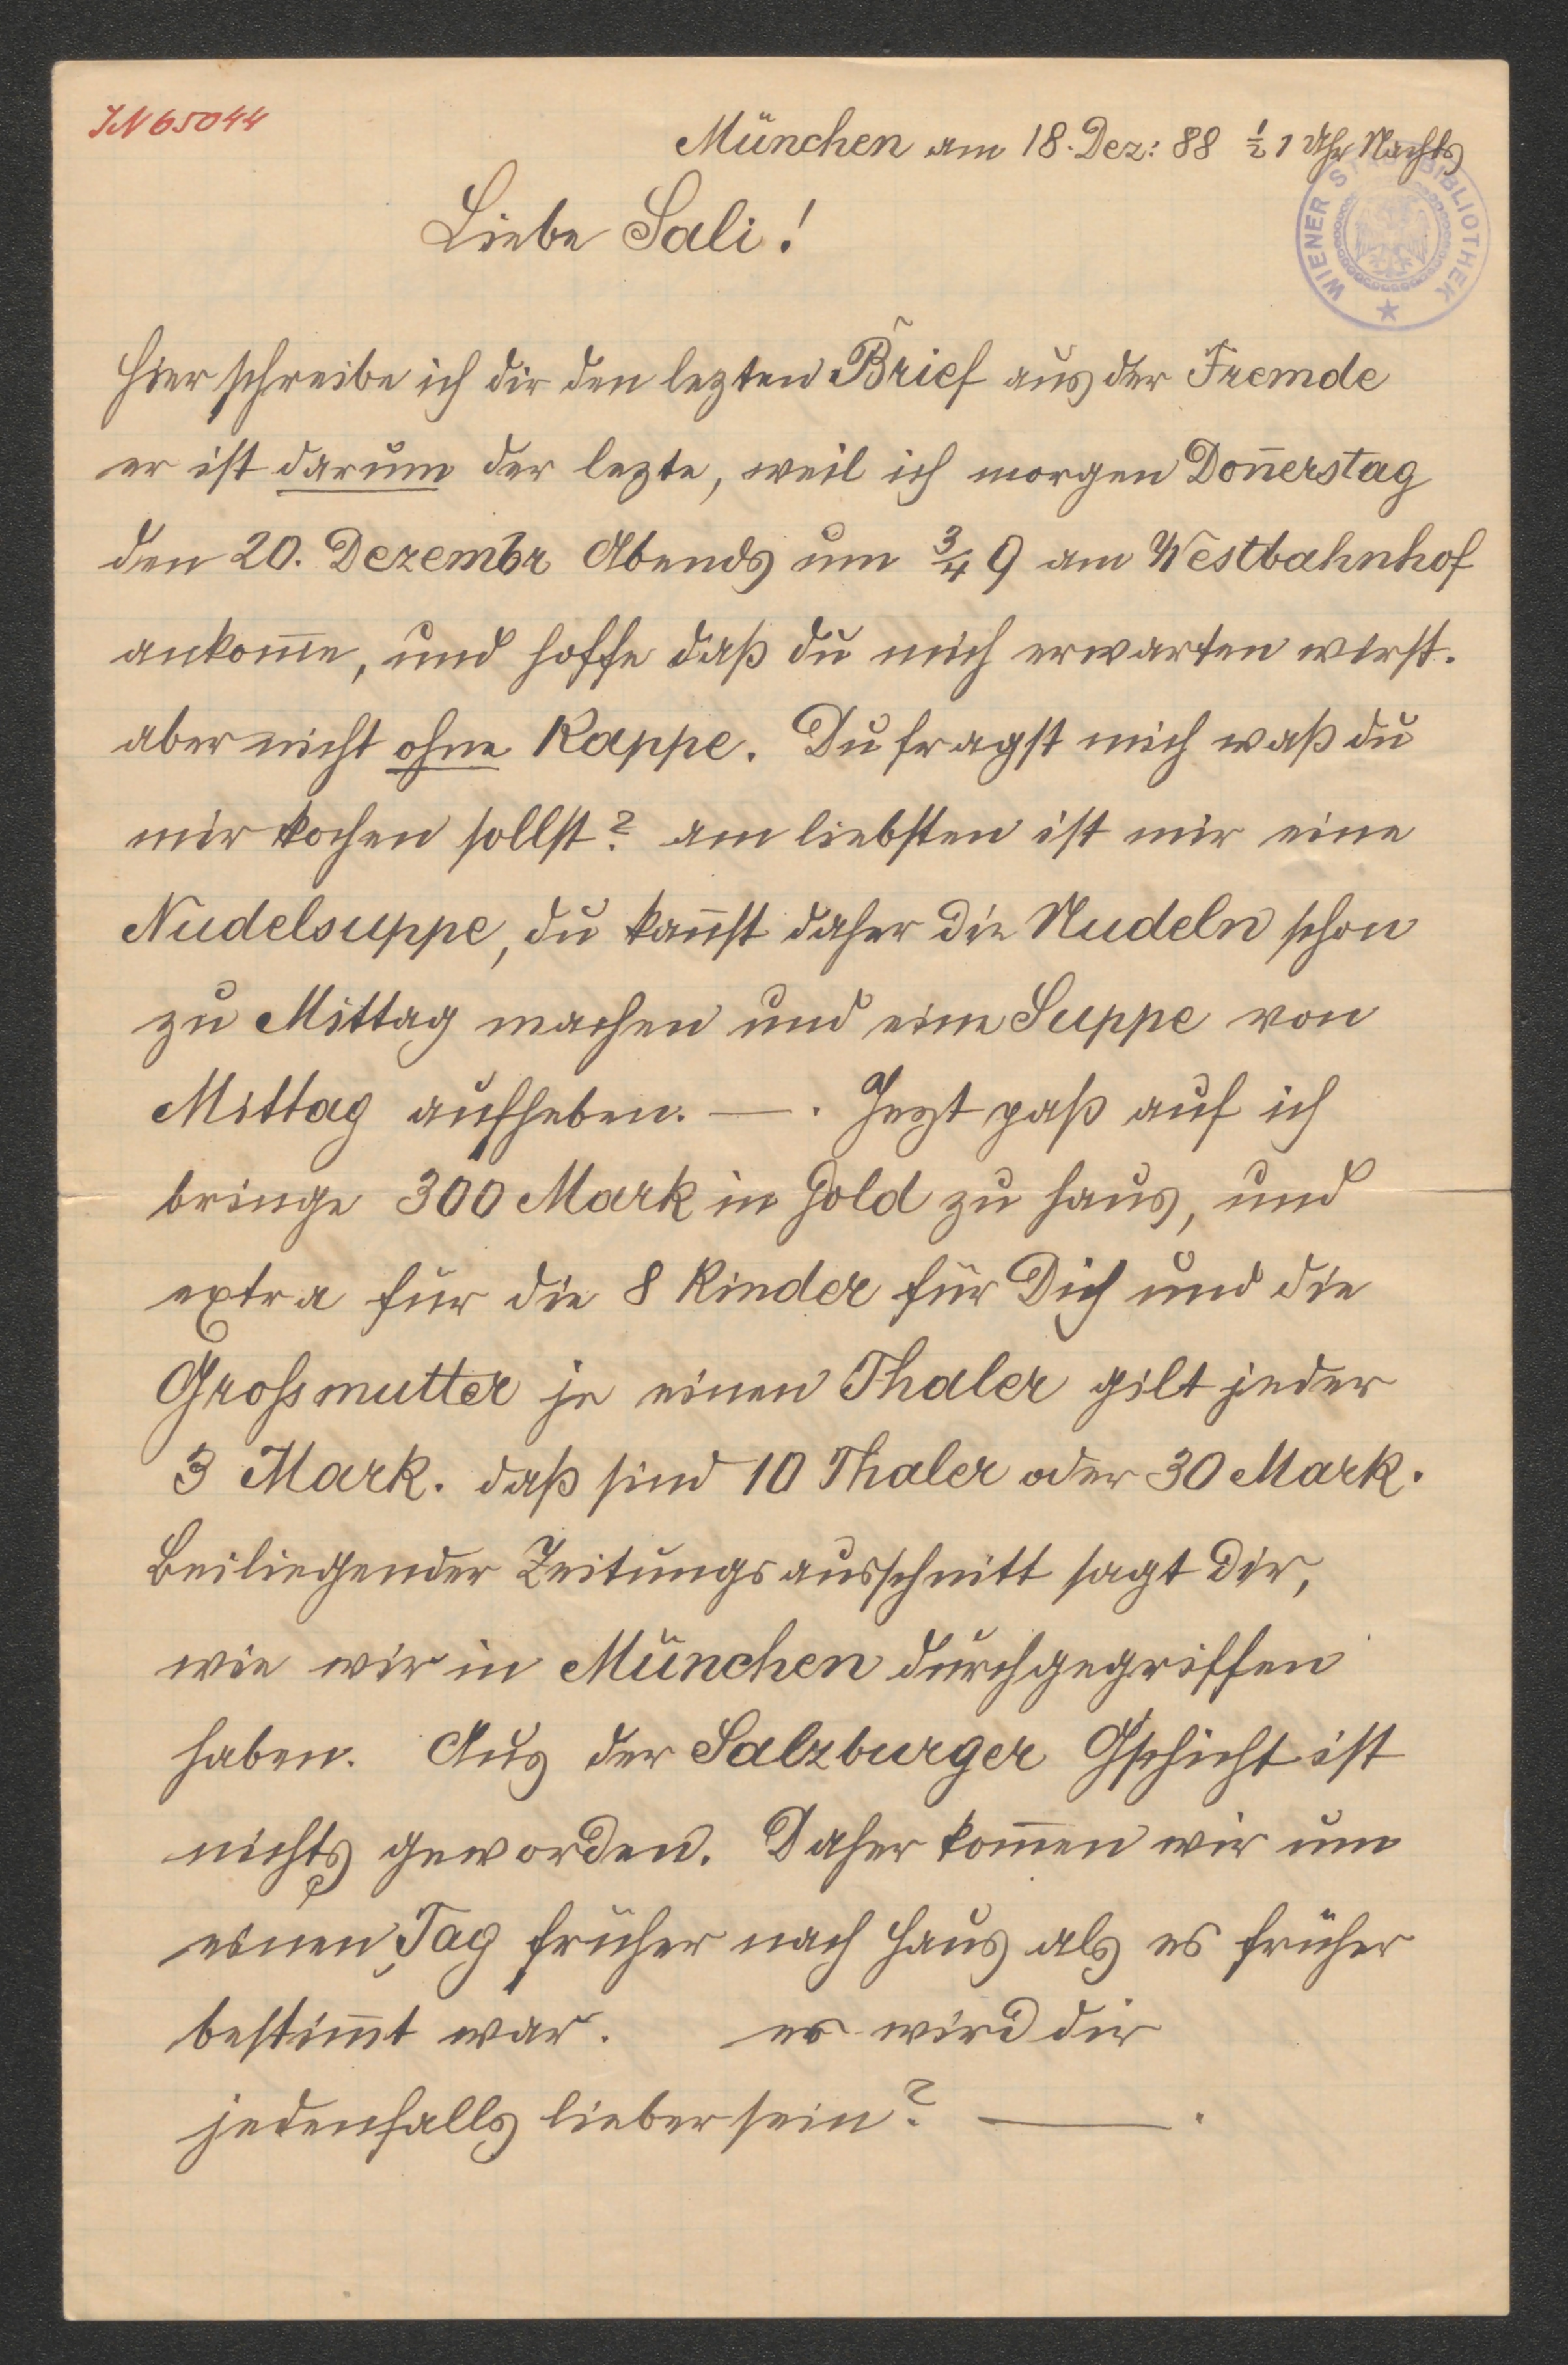 IN 65044
München am 18. Dez: 88 ½ 1 Uhr Nachts
WIENER STADTBIBLIOTHEK
Liebe Sali!
Hier schreibe ich dir den lezten Brief aus der Fremde
er ist darum der lezte, weil ich morgen Don̄erstag
den 20. Dezembr Abends um ¾ 9 am Westbahnhof
ankom̄e, und hoffe daß du mich erwarten wirst.
aber nicht ohne Kappe. Du fragst mich waß du
mir kochen sollst? am liebsten ist mir eine
Nudelsuppe, du kan̄st daher die Nudeln schon
zu Mittag machen und eine Suppe von
Mittag aufheben. —. Jezt paß auf ich
bringe 300 Mark in Gold zu Haus, und
extra für die 8 Kinder für Dich und die
Grossmutter je einen Thaler gilt jeder
3 Mark. daß sind 10 Thaler oder 30 Mark.
Beiliegender Zeitungsausschnitt sagt Dir,
wie wir in München durchgegriffen
haben. Aus der Salzburger Gschicht ist
nichts geworden. Daher kom̄en wir um
einen Tag früher nach Haus als es früher
bestim̄t war. es wird dir
jedenfalls lieber sein? —.